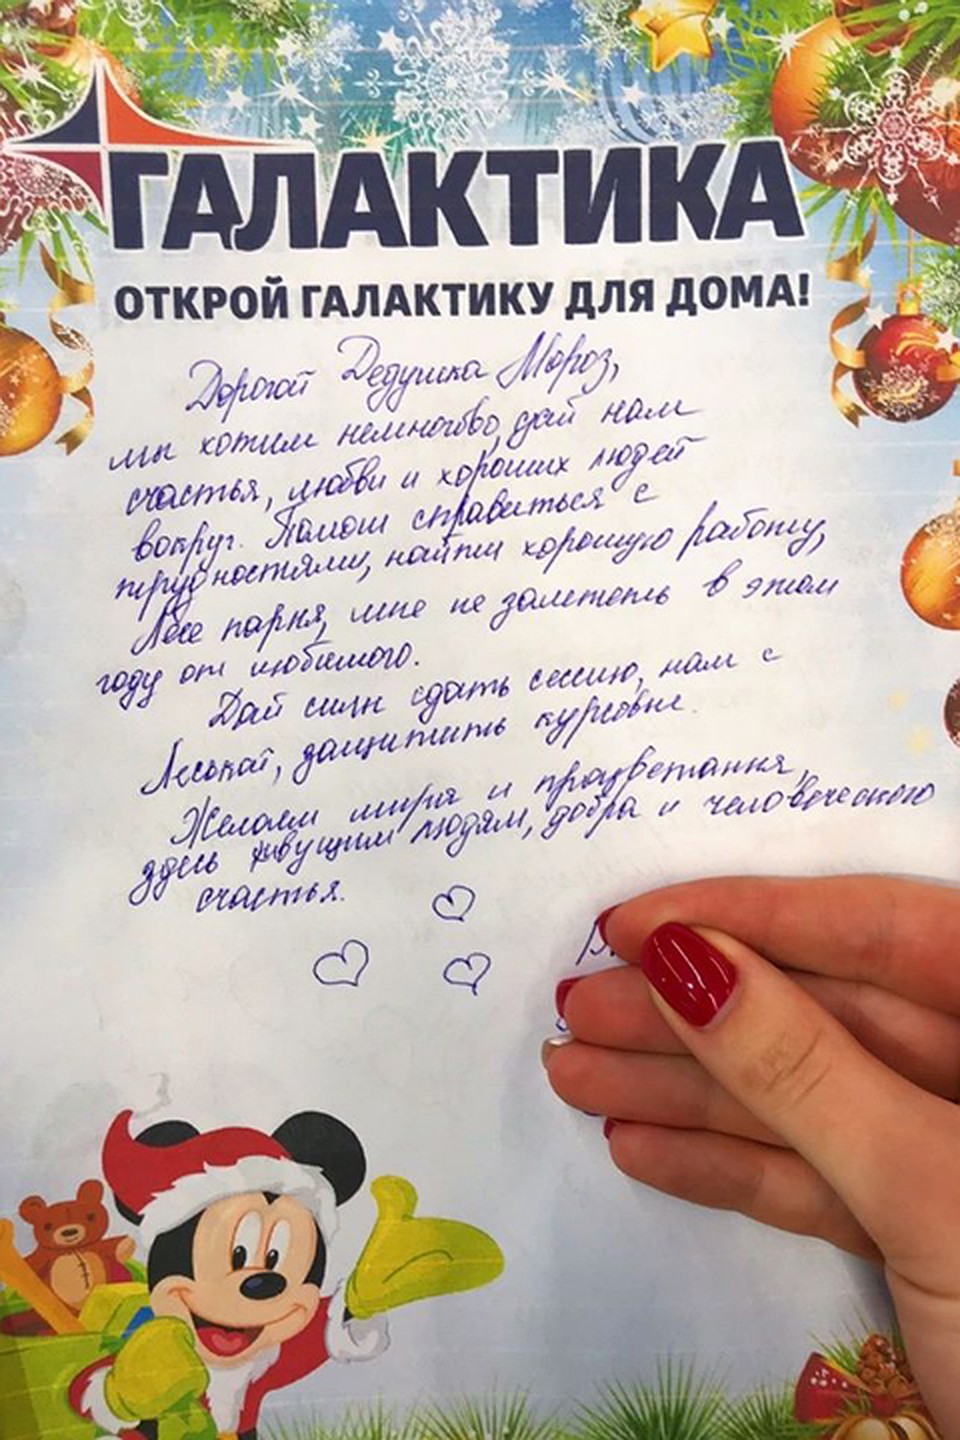 ГАЛАКТИКА
ОТКРОЙ ГАЛАКТИКУ ДЛЯ ДОМА!
Дорогой Дедушка Мороз,
мы хотим немногово, дай нам
счастья, любви и хороших людей
вокруг. Помоги справиться с
трудностями, найти хорошую работу,
Лесе парня, мне не залететь в этом
году от любимого.
Дай силы сдать сессию, нам с
Леськой, защитить курсовые.
Желаем мира и процветания,
здесь живущим людям, добра и человеческого
счастья.